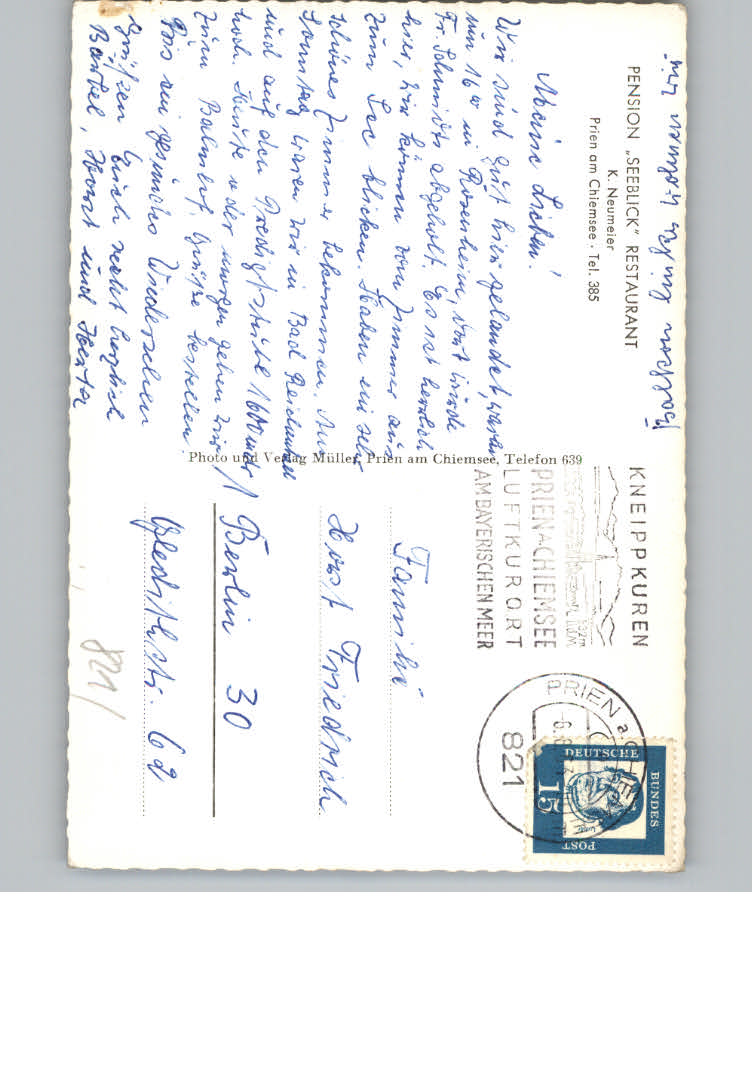 PENSION „SEEBLICK" RESTAURANT
K. Neumeier
Prien am Chiemsee · Tel. 385
Meine Lieben!
Wir sind gut hier gelandet, waren
um 16 00 in Rosenheim, dort wurde
Fr. Schmidt abgeholt. Es ist herrlich
hier, wir können vom Zimmer aus
zum See blicken. Haben ein sehr
schönes Zimmer bekommen. Am
Sonntag waren wir in Bad Reichenhall
und auf den Predigtstuhl 1600 mtr
hoch. Heute oder morgen gehen wir
zum Bahnhof, Grüße bestellen
Bis ein Wiedersehen
grüßen Euch recht herzlich
Bärbel, Horst und Herta
Photo und Verlag Müller, Prien am Chiemsee, Telefon 639
KNEIPPKUREN
532m
PRIEN A. CHIEMSEE
LUFTKURORT
AM BAYERISCHEN MEER
PRIEN a. CHIEM
-6.
821
DEUTSCHE
BUNDES
POST
15
Familie
Horst Friedrich
1 Berlin 30
Gleditschstr. 69
821